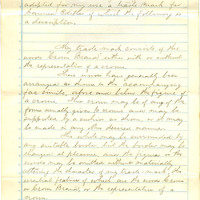 adopted for my use a trade mark for
Canned Shellfish of which the following is
a description
My trade mark consists of the
words Crown Brand either with or without
the representation of a crown.
These words have generally been
arranged as shown in the accompanying
fac simile, before and below the figure of
a crown. This crown may be of any of the
forms usually given to crowns and may be
supported by a cushion as shown, or it may
be made in any other desired manner.
The whole may be surrounded by
any suitable border but the border may be
changed at pleasure and the figure or the
crown may be omitted without materially
altering the character of my trade mark, the
essential feature of which are the words Crown
or Crown Brand or the representation of a
crown.